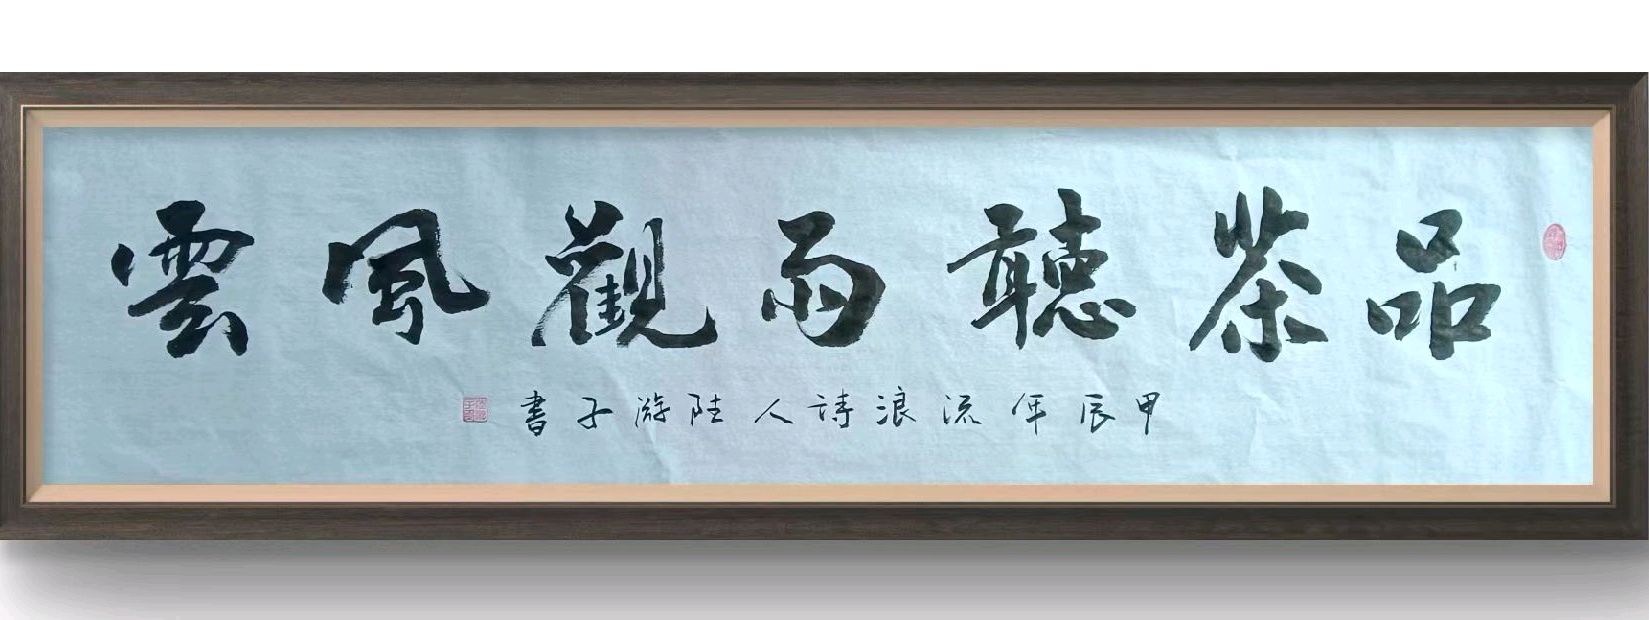 品茶聽雨觀風雲
甲辰年流浪詩人陸游子書